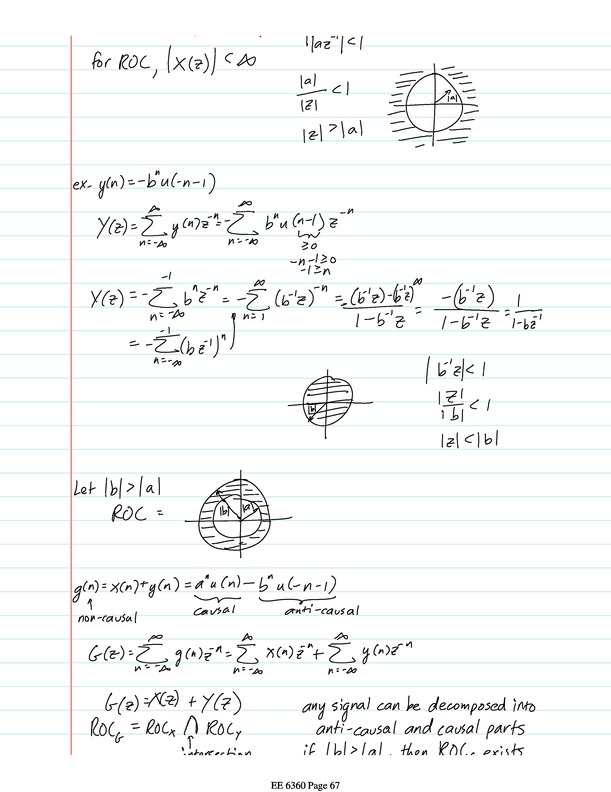 |az⁻¹| < 1
for ROC, |X(z)| < ∞
|a|/|z| < 1
|z| > |a|
|a|
ex- y(n) = -bⁿu(-n-1)
Y(z) = Σ_{n=-∞}^{∞} y(n)z⁻ⁿ = -Σ_{n=-∞}^{∞} bⁿ u(n-1) z⁻ⁿ
≥0
-n-1≥0
-1≥n
Y(z) = -Σ_{n=-∞}^{-1} bⁿz⁻ⁿ = -Σ_{n=1}^{∞} (b⁻¹z)⁻ⁿ = -(b⁻¹z)-(b⁻¹z)^∞/1-b⁻¹z = -(b⁻¹z)/1-b⁻¹z = 1/1-bz⁻¹
= -Σ_{n=-∞}^{-1} (bz⁻¹)ⁿ
|b⁻¹z| < 1
|z|/|b| < 1
|z| < |b|
|b|
Let |b| > |a|
ROC =
|b| |a|
g(n) = x(n) + y(n) = aⁿu(n) - bⁿu(-n-1)
non-causal causal anti-causal
G(z) = Σ_{n=-∞}^{∞} g(n)z⁻ⁿ = Σ_{n=-∞}^{∞} x(n)z⁻ⁿ + Σ_{n=-∞}^{∞} y(n)z⁻ⁿ
G(z) = X(z) + Y(z)
ROC_G = ROC_X ∩ ROC_Y
intersection
any signal can be decomposed into
anti-causal and causal parts
if |b| > |a|, then ROC_G exists
EE 6360 Page 67